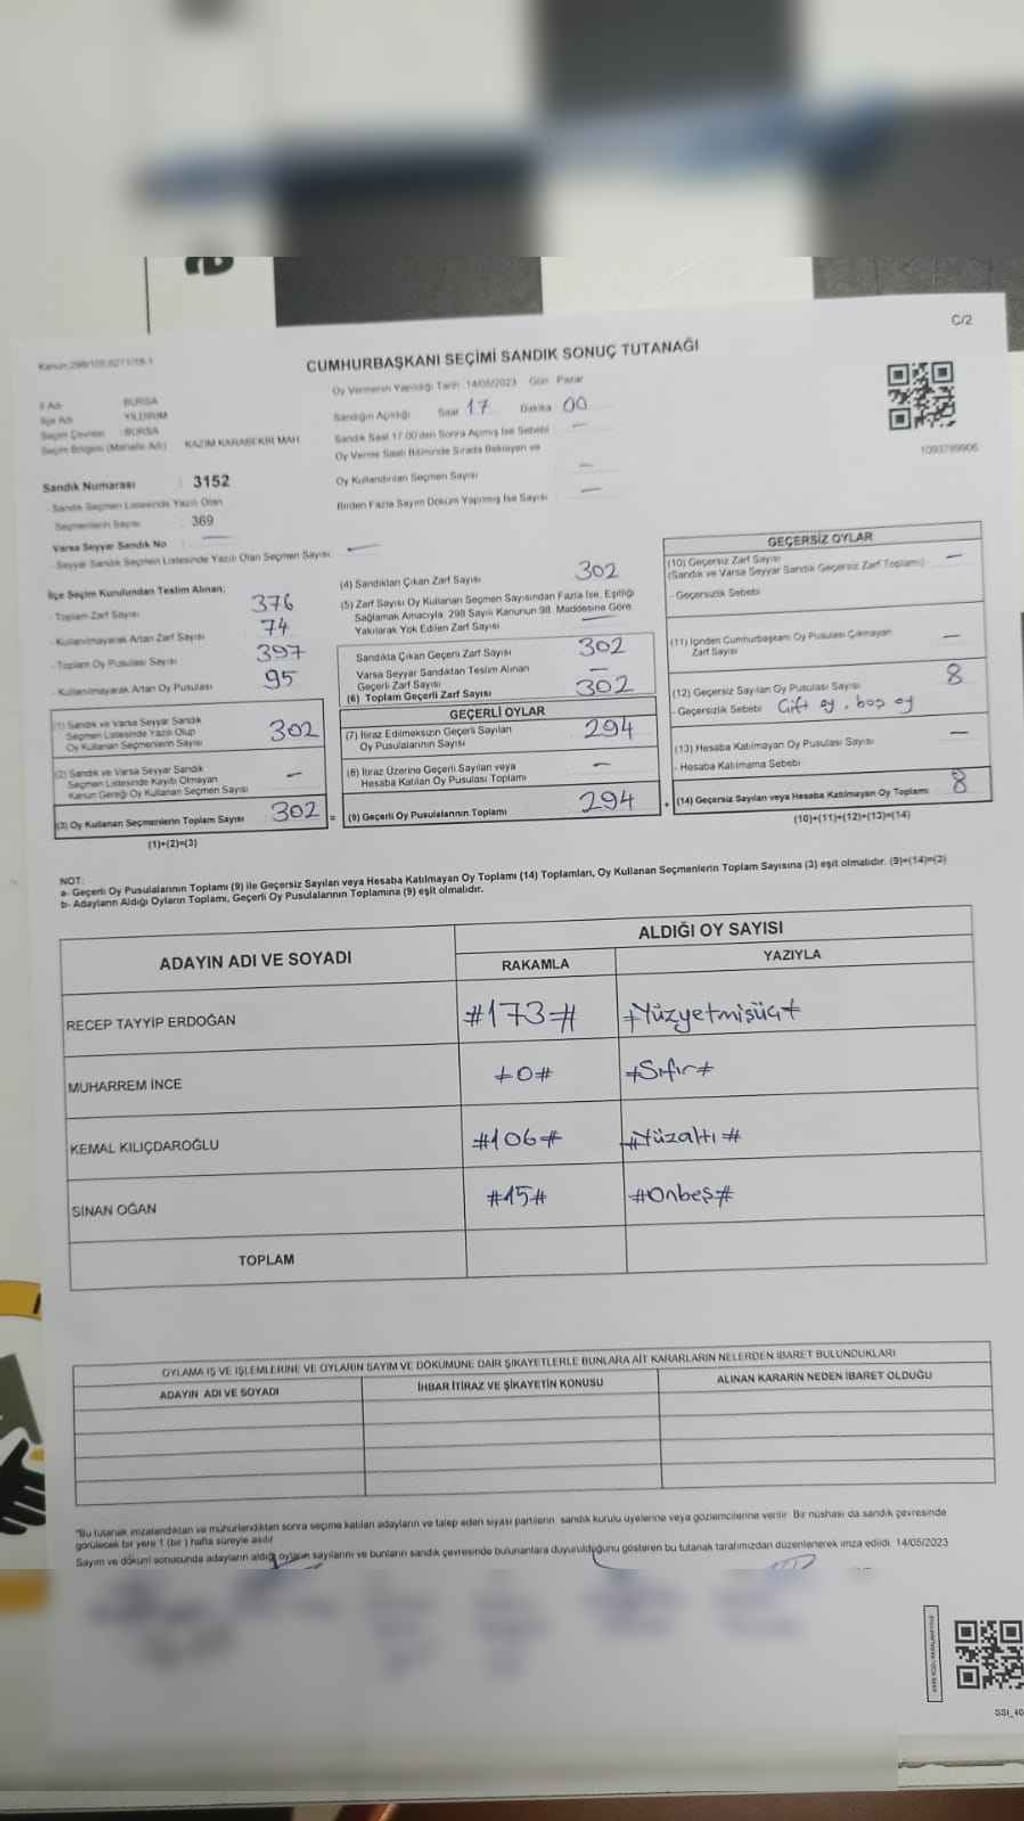 C/2
CUMHURBAŞKANI SEÇİMİ SANDIK SONUÇ TUTANAĞI
Oy Vermenin Yapıldığı Tarih 14/05/2023 Gün Pazar
İl Adı BURSA
İlçe Adı YILDIRIM
Seçim Çevresi BURSA
Seçim Bölgesi (Mahalle Adı) KAZIM KARABEKİR MAH.
Sandığın Açıldığı Saat 17 Dakika 00
Sandık Saat 17:00'den Sonra Açılmış İse Sebebi —
Oy Verme Saati Bitiminde Sırada Bekleyen ve
Oy Kullandırılan Seçmen Sayısı —
Birden Fazla Sayım Döküm Yapılmış İse Sayısı —
1093799906
Sandık Numarası 3152
Sandık Seçmen Listesinde Yazılı Olan
Seçmenlerin Sayısı : 369
Varsa Seyyar Sandık No —
Seyyar Sandık Seçmen Listesinde Yazılı Olan Seçmen Sayısı —
İlçe Seçim Kurulundan Teslim Alınan;
- Toplam Zarf Sayısı 376
- Kullanılmayarak Artan Zarf Sayısı 74
- Toplam Oy Pusulası Sayısı 397
- Kullanılmayarak Artan Oy Pusulası 95
(1) Sandık ve Varsa Seyyar Sandık
Seçmen Listesinde Yazılı Olup
Oy Kullanan Seçmenlerin Sayısı 302
(2) Sandık ve Varsa Seyyar Sandık
Seçmen Listesinde Kaydı Olmayan
Kanun Gereği Oy Kullanan Seçmen Sayısı —
(3) Oy Kullanan Seçmenlerin Toplam Sayısı 302 =
(1)+(2)=(3)
(4) Sandıktan Çıkan Zarf Sayısı 302
(5) Zarf Sayısı Oy Kullanan Seçmen Sayısından Fazla İse, Eşitliği
Sağlamak Amacıyla, 298 Sayılı Kanunun 98. Maddesine Göre
Yakılarak Yok Edilen Zarf Sayısı —
Sandıkta Çıkan Geçerli Zarf Sayısı 302
Varsa Seyyar Sandıktan Teslim Alınan
Geçerli Zarf Sayısı —
(6) Toplam Geçerli Zarf Sayısı 302
GEÇERLİ OYLAR
(7) İtiraz Edilmeksizin Geçerli Sayılan
Oy Pusulalarının Sayısı 294
(8) İtiraz Üzerine Geçerli Sayılan veya
Hesaba Katılan Oy Pusulası Toplamı —
(9) Geçerli Oy Pusulalarının Toplamı 294 +
GEÇERSİZ OYLAR
(10) Geçersiz Zarf Sayısı
(Sandık ve Varsa Seyyar Sandık Geçersiz Zarf Toplamı) —
- Geçersizlik Sebebi
(11) İçinden Cumhurbaşkanı Oy Pusulası Çıkmayan
Zarf Sayısı —
(12) Geçersiz Sayılan Oy Pusulası Sayısı 8
- Geçersizlik Sebebi Çift oy, boş oy
(13) Hesaba Katılmayan Oy Pusulası Sayısı —
- Hesaba Katılmama Sebebi
(14) Geçersiz Sayılan veya Hesaba Katılmayan Oy Toplamı 8
(10)+(11)+(12)+(13)=(14)
NOT:
a- Geçerli Oy Pusulalarının Toplamı (9) ile Geçersiz Sayılan veya Hesaba Katılmayan Oy Toplamı (14) Toplamları, Oy Kullanan Seçmenlerin Toplam Sayısına (3) eşit olmalıdır. (9)+(14)=(3)
b- Adayların Aldığı Oyların Toplamı, Geçerli Oy Pusulalarının Toplamına (9) eşit olmalıdır.
ADAYIN ADI VE SOYADI
ALDIĞI OY SAYISI
RAKAMLA YAZIYLA
RECEP TAYYİP ERDOĞAN #173# #Yüzyetmişüç#
MUHARREM İNCE #0# #Sıfır#
KEMAL KILIÇDAROĞLU #106# #Yüzaltı#
SİNAN OĞAN #15# #Onbeş#
TOPLAM
OYLAMA İŞ VE İŞLEMLERİNE VE OYLARIN SAYIM VE DÖKÜMÜNE DAİR ŞİKAYETLERLE BUNLARA AİT KARARLARIN NELERDEN İBARET BULUNDUKLARI
ADAYIN ADI VE SOYADI İHBAR İTİRAZ VE ŞİKAYETİN KONUSU ALINAN KARARIN NEDEN İBARET OLDUĞU
"Bu tutanak imzalandıktan ve mühürlendikten sonra seçime katılan adayların ve talep eden siyasi partilerin, sandık kurulu üyelerine veya gözlemcilerine verilir. Bir nüshası da sandık çevresinde
görülecek bir yere 1 (bir ) hafta süreyle asılır.
Sayım ve döküm sonucunda adayların aldığı oyların sayılarını ve bunların sandık çevresinde bulunanlara duyurulduğunu gösteren bu tutanak tarafımızdan düzenlenerek imza edildi. 14/05/2023
SSI_40